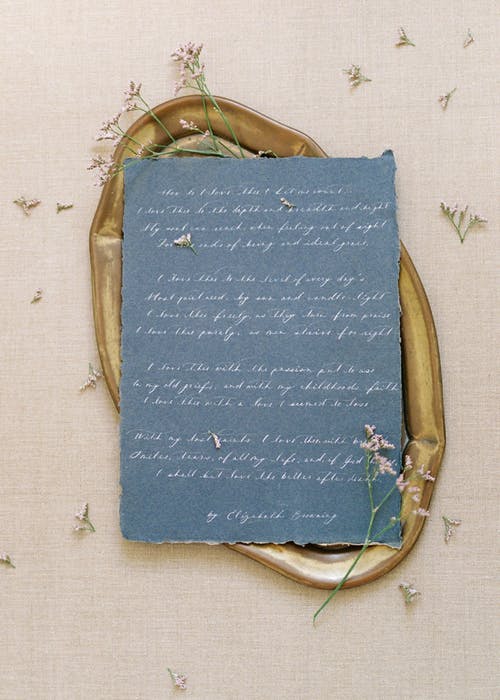 How do I love thee? Let me count...
I love thee to the depth and breadth and height
My soul can reach, when feeling out of sight
For ends of being and ideal grace.
I love thee to the level of every day's
Most quiet need, by sun and candle-light
I love thee freely, as they turn from praise
I love thee purely, as men strive for right
I love thee with the passion put to use
In my old griefs, and with my childhood's faith
I love thee with a love I seemed to lose
With my lost saints. I love thee with
Smiles, tears, of all my life, and if God
I shall but love thee better after death
by Elizabeth Browning